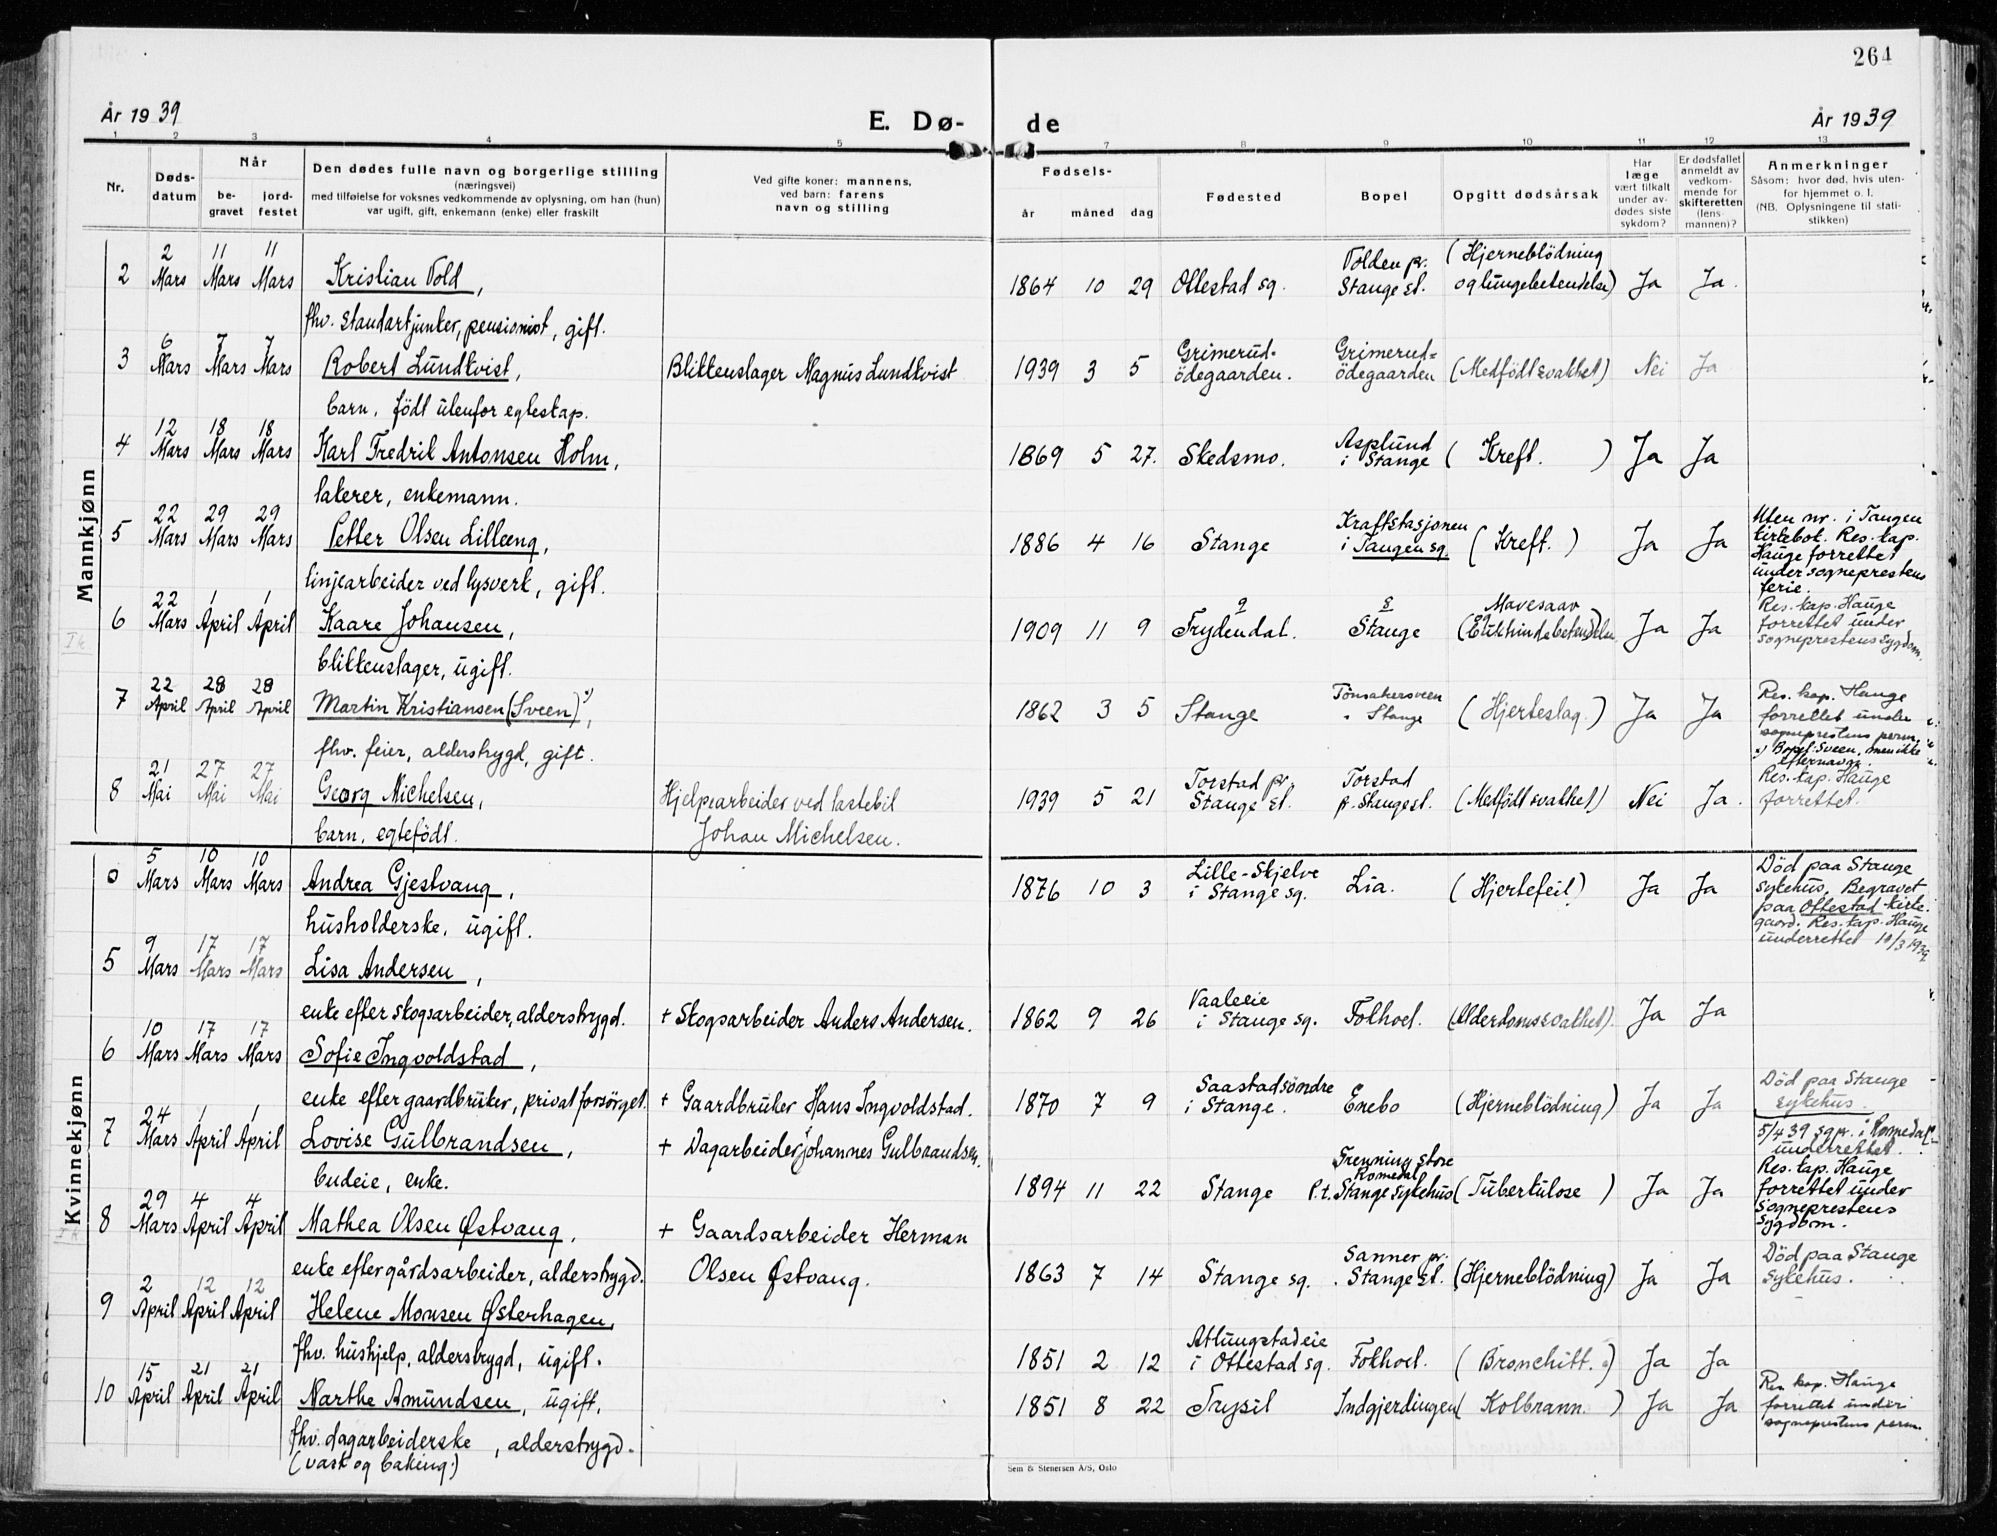 264
År 1939 E. Dø- de År 1939
1 2 3 4 5 7 8 9 10 11 12 13
Nr.
Døds-
datum
Når
be-
gravet
jord-
festet
Den dødes fulle navn og borgerlige stilling
(næringsvei)
med tilføielse for voksnes vedkommende av oplysning, om han (hun)
var ugift, gift, enkemann (enke) eller fraskilt
Ved gifte koner: mannens,
ved barn: farens
navn og stilling
Fødsels-
år måned dag
Fødested
Bopel
Opgitt dødsårsak
Har
læge
vært tilkalt
under av-
dødes siste
sykdom?
Er dødsfallet
anmeldt av
vedkom-
mende for
skifteretten
(lens-
mannen)?
Anmerkninger
Såsom: hvor død, hvis uten-
for hjemmet o. l.
(NB. Oplysningene til stati-
stikken)
Mannkjønn
2 11 11 Tolden pr. (Hjerneblödning
2 Mars Mars Mars Kristian Told, 1864 10 29 Ottestad sg. Stange st. og lungebetendelse) Ja Ja.
fhv. standartjunker, pensionist, gift.
6 7 7 Grimerud- Grimerud=
3 Mars Mars Mars Robert Lundkvist, Blikkenslager Magnus Lundkvist 1939 3 5 ödegaarden. ödegaarden (Medfödt svakhet) Nei Ja
barn, födt utenfor egteskap.
12 18 18 Asplund
4 Mars Mars Mars Karl Fredrik Antonsen Holm, 1869 5 27. Skedsmo. i Stange (Kreft.) Ja Ja
lakerer, enkemann.
22 29 29 Kraftstasjonen Uten nr. i Tangen
5 Mars Mars Mars Petter Olsen Lilleeng, 1886 4 16 Stange i Tangen sg. (Kreft.) Ja Ja kirkebok. Res. kap.
Hauge forrettet
linjearbeider ved lysverk, gift. under sogneprestens
ferie.
22 1 1 Mavesaar Res. kap. Hauge
6 Mars April April Kaare Johansen, 1909 11 9 Frydendal. Stange Ja Ja forrettet under
sogneprestens sygdom.
blikkenslager, ugift.
22 28 28 Tönsakersveen Res. kap. Hauge
7 April April April Martin Kristiansen (Sveen), 1862 3 5 Stange Stange (Hjerteslag.) Ja Ja forrettet under
sogneprestens perm.
fhv. feier, alderstrygd, gift. Bopel: Sveen, men ikke
efternavn.
21 27 27 Torstad pr. Torstad Res. kap. Hauge
8 Mai Mai Mai Georg Michelsen, Hjelpearbeider ved lastebil 1939 5 21 Stange st. p. Stange st. (Medfödt svakhet) Nei Ja. forrettet.
barn, egtefödt. Johan Michelsen.
Kvinnekjønn
5 10 10 Lille-Skjelve Död paa Stange
Mars Mars Mars Andrea Gjestvang, 1876 10 3 i Stange sg. Lia. (Hjertefeil) Ja Ja sykehus. Begravet
paa Ottestad kirke-
husholderske, ugift. gaard. Res. kap. Hauge
underrettet 10/3 1939.
9 17 17
5 Mars Mars Mars Lisa Andersen,
Vaaleeie
enke efter skogsarbeider, alderstrygd. + Skogsarbeider Anders Andersen. 1862 9 26 i Stange sg. Folhoel. (Alderdomssvakhet). Ja Ja
10 17 17
6 Mars Mars Mars Sofie Ingvoldstad,
Saastad söndre Död paa Stange
enke efter gaardbruker, privat forsörget. + Gaardbruker Hans Ingvoldstad. 1870 7 9 i Stange. Enebo (Hjerneblödning) Ja Ja sykehus.
24 1 1 5/4 39 sgpr. i Romedal
7 Mars April April Lovise Gulbrandsen, + Dagarbeider Johannes Gulbrandsen. underrettet.
Frenning store Res. kap. Hauge
Romedal
budeie, enke. 1894 11 22 Stange P.t. Stange sykehus (Tuberkulose) Ja Ja forrettet under
sogneprestens
29 4 4 sygdom.
8 Mars April April Mathea Olsen Østvang, + Gaardsarbeider Herman
Sanner pr. Död paa Stange
enke efter gårdsarbeider, alderstrygd. Olsen Østvang. 1863 7 14 Stange sg. Stange st. (Hjerneblödning) Ja Ja sykehus.
2 12 12
9 April April April Helene Monsen Østerhagen,
Atlungstadeie
fhv. hushjelp, alderstrygd, ugift. 1851 2 12 i Ottestad sg. Folhoel. (Bronchitt.) Ja Ja
15 21 21 Res. kap. Hauge
10 April April April Narthe Amundsen, ugift, 1851 8 22 Trysil Indgjerdingen (Kolbrann.) Ja Ja forrettet under
sogneprestens perm.
fhv. dagarbeiderske, alderstrygd.
(vask og baking.)
Sem & Stenersen A/S, Oslo